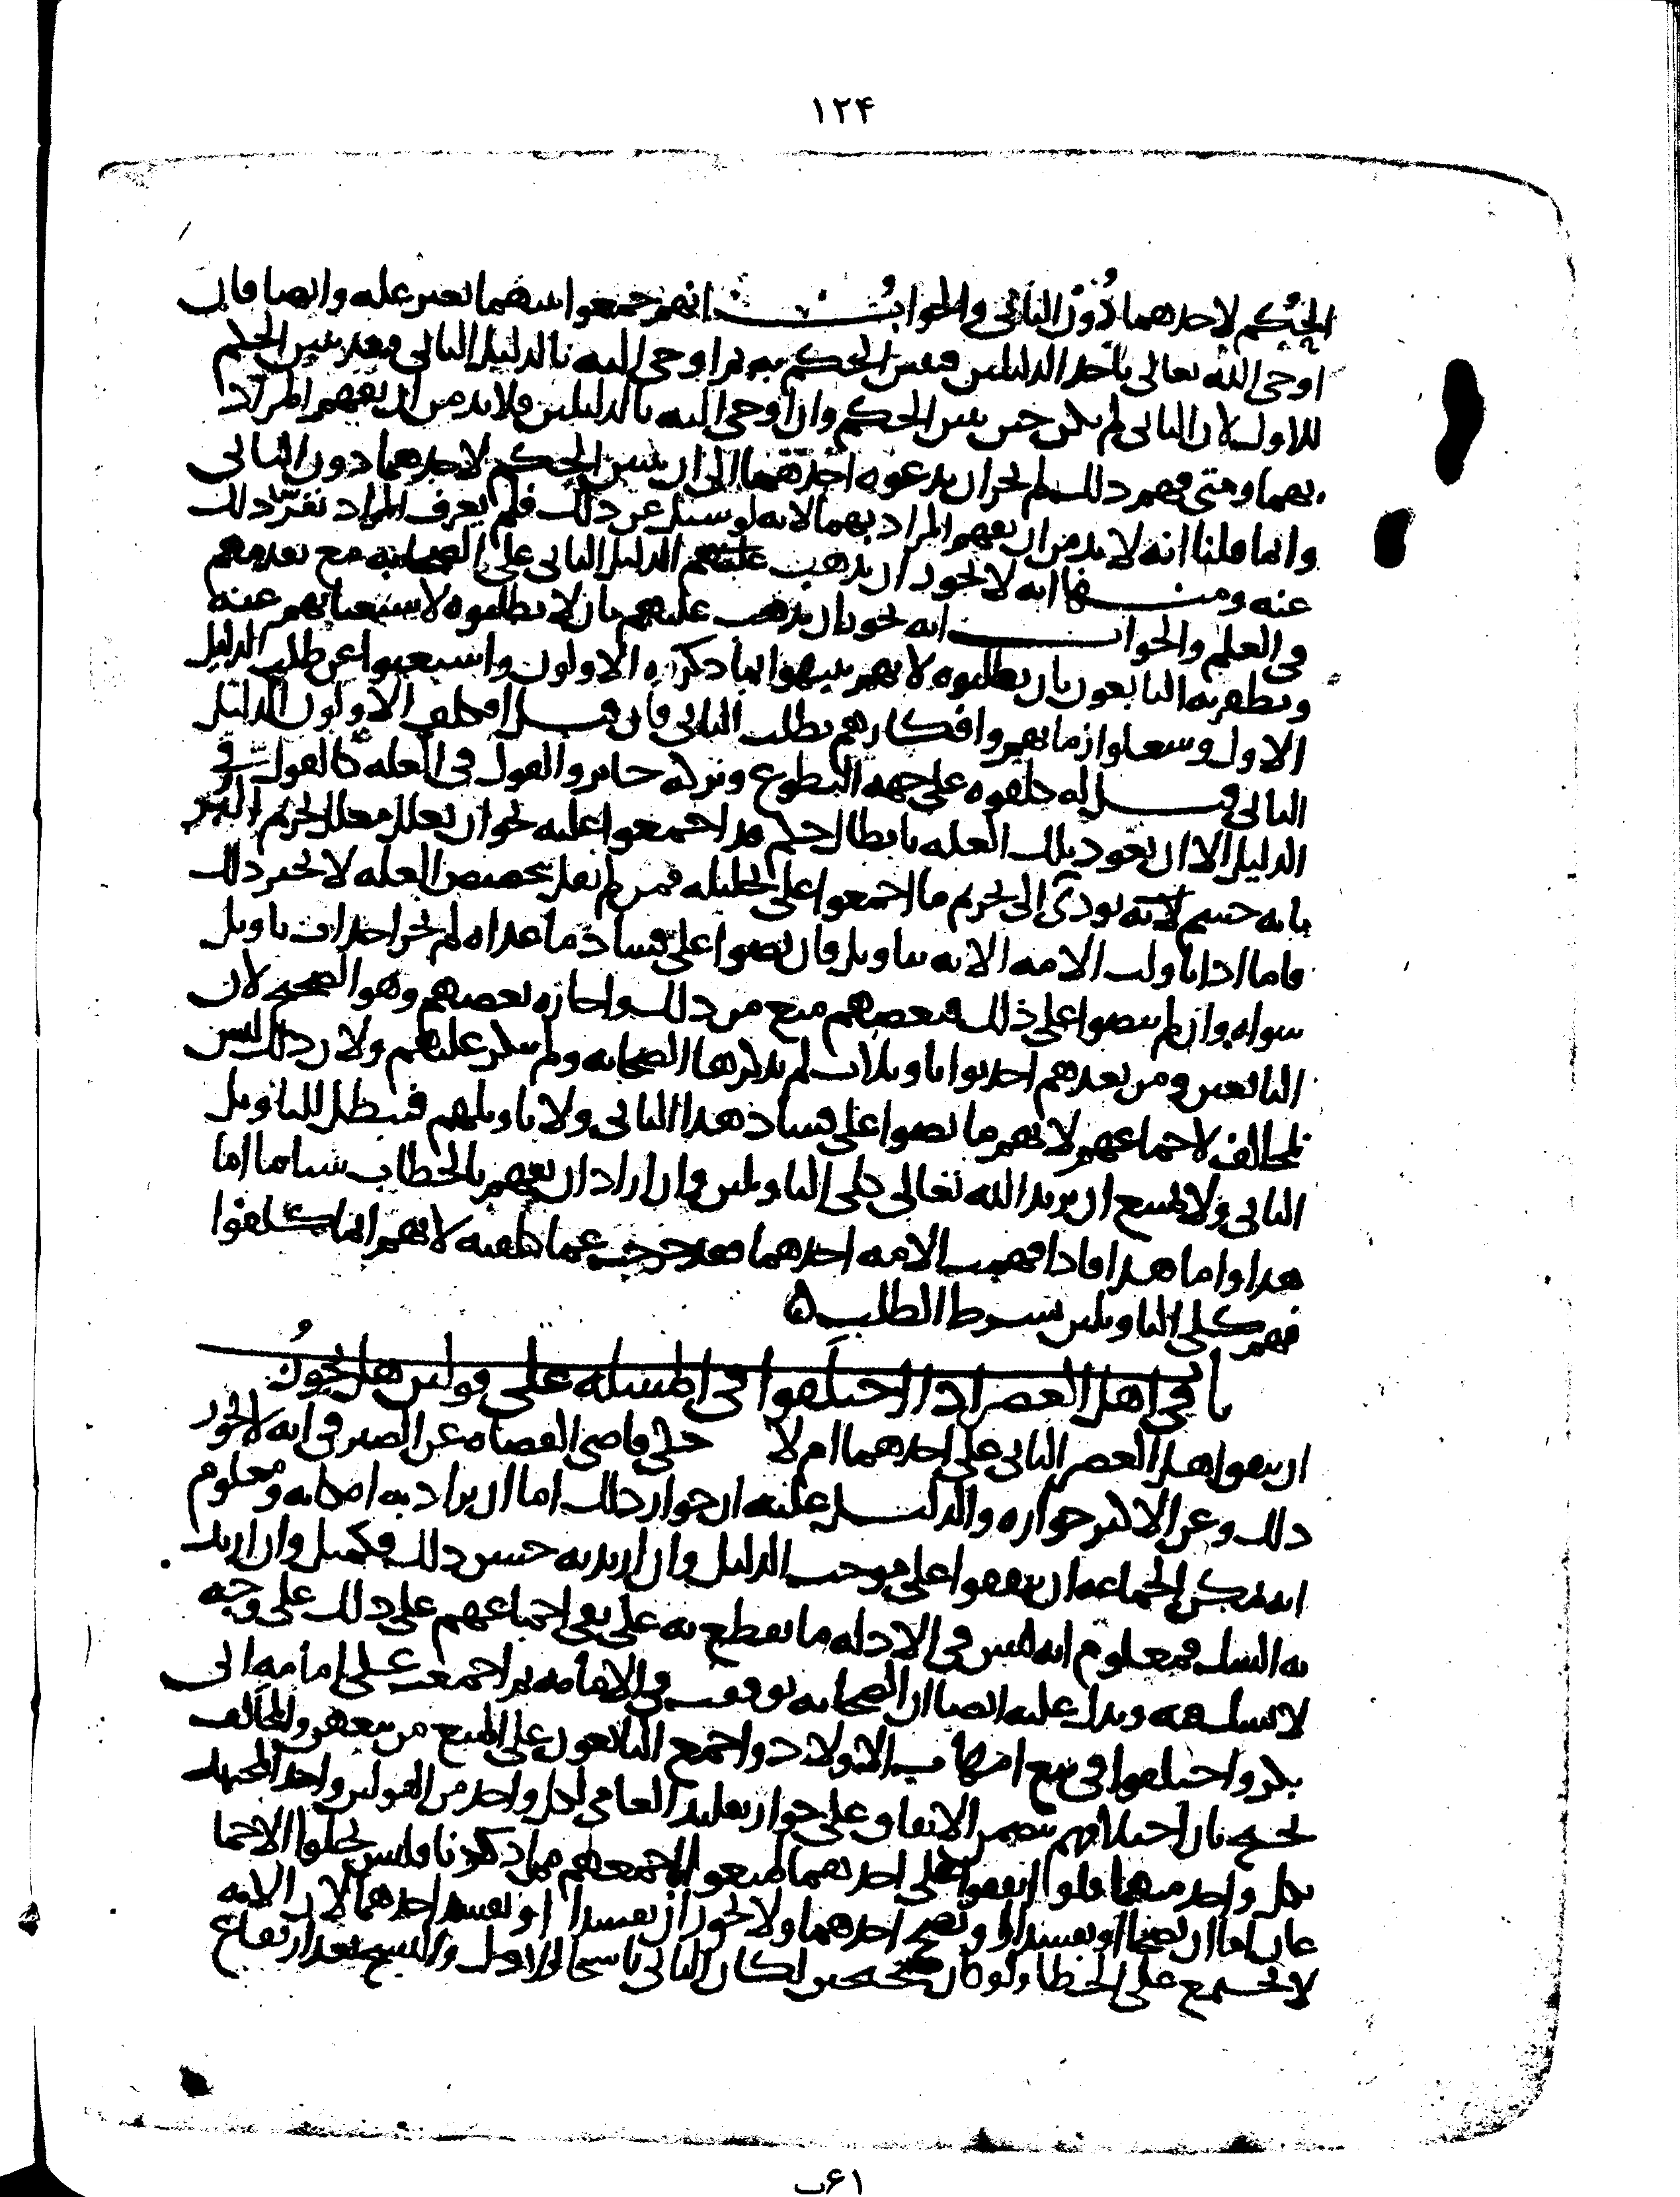 ١٢۴
الحكم لاحدهما دُون الثاني والجواب انهم جمعوا بينهما بغير عله وايضا فان
اوحى الله تعالى باحد الدليلين فبين الحكم به ثم اوحى اليه بالدليل الثاني فقد تبين الحكم
للاول لان الثاني لم يكن حين بين الحكم وان اوحى اليه بالدليلين فلا بد من ان يفهم المراد
بهما ومتى فهم ذلك لم يجز ان يدعوه احدهما الى ان يتبين الحكم لاحدهما دون الثاني
وانما قلنا انه لا بد من ان يفهم المراد بهما لانه لو سئل عن ذلك فلم يعرف المراد نفر ذلك
عنه ومنها انه لا يجوز ان يذهب عليهم الدليل الثاني على الصحابه مع تقدمهم
في العلم والجواب انه يجوز ان يذهب عليهم بان لا يطلبوه لاستغنائهم عنه
ويظفر به التابعون بان يطلبوه لانهم نبهوا بما ذكره الاولون واستغنوا عن طلب الدليل
الاول وشغلوا زمانهم وافكارهم بطلب الثاني فان قيل افكلف الاولون الدليل
الثاني قيل له كلفوه على جهه التطوع وتركه جايز والقول في العله كالقول في
الدليل الا ان تعود تلك العله بابطال حكم قد اجمعوا عليه نحو ان يعلل معلل تحريم البر
بانه جسم لانه يودي الى تحريم ما اجمعوا على تحليله فمن لم يقل بتخصيص العله لا يجيز ذلك
فاما اذا تاولت الامه الايه بتاويل فان نصوا على فساد ما عداه لم يجز احداث تاويل
سواه وان لم ينصوا على ذلك فبعضهم منع من ذلك واجازه بعضهم وهو الصحيح لان
التابعين ومن بعدهم احدثوا تاويلات لم يذكرها الصحابه ولم ينكر عليهم ولان ذلك ليس
بمخالف لاجماعهم لانهم ما نصوا على فساد هذا الثاني ولا تاويلهم فيبطل للتاويل
الثاني ولا يمتنع ان يريد الله تعالى كلي التاويلين وان اراد ان يفهم بالخطاب شيا ما اما
هذا واما هذا فاذا فهمت الامه احدهما فقد خرجت عما كلفته لانهم انما كلفوا
فهم كلي التاويلين بشرط الطلب ۵
باب في اهل العصر اذا اختلفوا في المسئله على قولين هل يجوز
ان يتفق اهل العصر الثاني على احدهما ام لا حكى قاضي القضاه عن الصيرفي انه لا يجوز
ذلك وعن الاكثر جوازه والدليل عليه ان جواز ذلك اما ان يراد به امكانه ومعلوم
انه يمكن الجماعه ان يتفقوا على موجب الدليل وان اريد به حسن ذلك فكمثل وان اريد
به الشك فمعلوم انه ليس في الادله ما يقطع به على نفي اجماعهم على ذلك على وجه
لا نشك فيه ويدل عليه ايضا ان الصحابه توقفت في الامامه ثم اجمعت على امامه ابي
بكر واختلفوا في بيع امهات الاولاد واجمع التابعون على المنع من بيعهن والمخالف
يحتج بان اختلافهم يتضمن الاتفاق على جواز تقليد العامي لكل واحد من القولين واخذ المجتهد
بكل واحد منهما فلو اتفقوا على احدهما لمنعوا باجمعهم مما ذكرنا وليس يخلوا الاجما
عان اما ان يصحا او يفسدا او يصح احدهما ولا يجوز ان يفسدا او يفسد احدهما لان الامه
لا تجتمع على الخطا ولو كانا صحيحين لكان الثاني ناسخا للاول والنسخ بعد ارتفاع
۶١ب